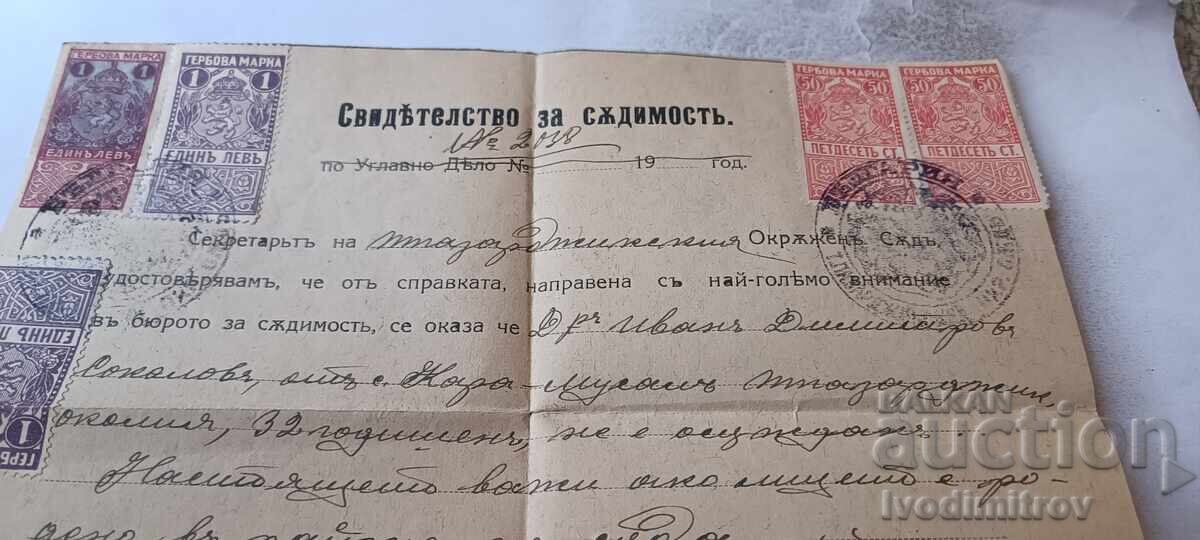 ГЕРБОВА МАРКА
1 1
ЕДИНЪ ЛЕВЪ
ГЕРБОВА МАРКА
1 1
ЕДИНЪ ЛЕВЪ
ГЕРБОВА МАРКА
50 50
ПЕТДЕСЕТЬ СТ.
ГЕРБОВА МАРКА
50 50
ПЕТДЕСЕТЬ СТ.
Свидѣтелство за сѫдимость.
№ 2038
по Углавно Дѣло № 19 год.
Секретарьтъ на Т. Пазарджикския Окрѫженъ Сѫдъ,
удостовѣрявамъ, че отъ справката, направена съ най-голѣмо внимание
въ бюрото за сѫдимость, се оказа че Д-ръ Иванъ Димитровъ
Соколовъ, отъ с. Кара-Мусалъ Т. Пазарджик.
околия, 32 годишенъ, не е осужданъ.
Настоящето важи ако лицето е ро-
дено въ района
ЕДИНЪ
1
ГЕРБ
BALKAN
auction
Ivodimitrov